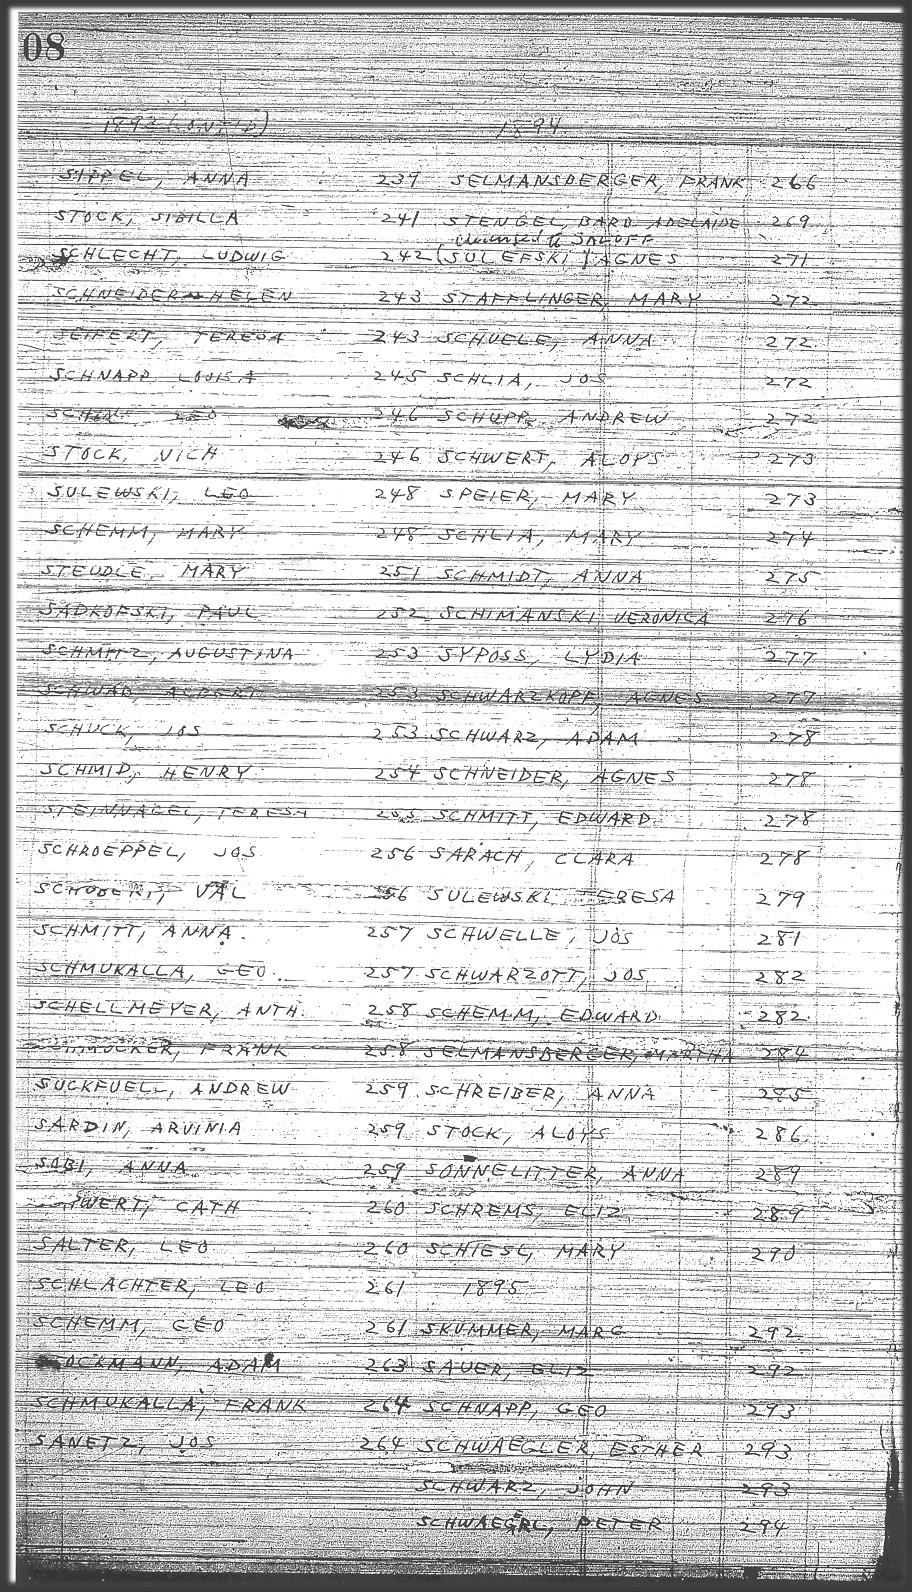 08
1893 (CONT'D)
1894
SIPPEL, ANNA 239
STOCK, SIBILLA 241
SCHLECHT, LUDWIG 242
SCHNEIDER HELEN 243
SEIFERT, TERESA 243
SCHNAPP LOUISA 245
LEO 246
STOCK, NICH 246
SULEWSKI, LEO 248
SCHEMM, MARY 248
STEUDLE, MARY 251
SADKOFSKI, PAUL 252
SCHMITZ, AUGUSTINA 253
SCHWAB, ALBERT 253
SCHUCK, JOS 253
SCHMID, HENRY 254
STEINNAGEL, TERESA 255
SCHROEPPEL, JOS 256
SCHUBERT, VAL 256
SCHMITT, ANNA 257
SCHMUKALLA, GEO. 257
SCHELLMEYER, ANTH. 258
FRANK 258
SUCKFUELL, ANDREW 259
SARDIN, ARVINIA 259
SOBI, ANNA 259
CATH 260
SALTER, LEO 260
SCHLACHTER, LEO 261
SCHEMM, GEO 261
STOCKMANN, ADAM 263
SCHMUKALLA, FRANK 264
SANETZ, JOS 264
SELMANSBERGER, FRANK 266
STENGEL, BARB ADELAIDE 269
changed to SALOFF
(SULEFSKI) AGNES 271
STAFFLINGER, MARY 272
SCHUELE, ANNA 272
SCHLIA, JOS 272
SCHUPP, ANDREW 272
SCHWERT, ALOYS 273
SPEIER, MARY 273
SCHLIA, MARY 274
SCHMIDT, ANNA 275
SCHIMANSKI VERONICA 276
SYPOSS, LYDIA 277
SCHWARZKOPF, AGNES 277
SCHWARZ, ADAM 278
SCHNEIDER, AGNES 278
SCHMITT, EDWARD 278
SARACH, CLARA 278
SULEWSKI TERESA 279
SCHWELLE, JOS 281
SCHWARZOTT, JOS 282
SCHEMM, EDWARD 282
SELMANSBERGER, MARTHA 284
SCHREIBER, ANNA 285
STOCK, ALOYS 286
SONNELITTER, ANNA 289
SCHREMS, ELIZ 289
SCHIESL, MARY 290
1895
SKUMMER, MARG 292
SAUER, ELIZ 292
SCHNAPP, GEO 293
SCHWAEGLER, ESTHER 293
SCHWARZ, JOHN 293
SCHWAEGRL, PETER 294